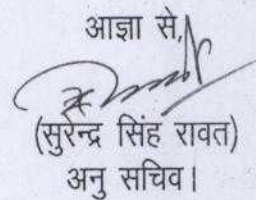 आज्ञा से,
(सुरेन्द्र सिंह रावत)
अनु सचिव।